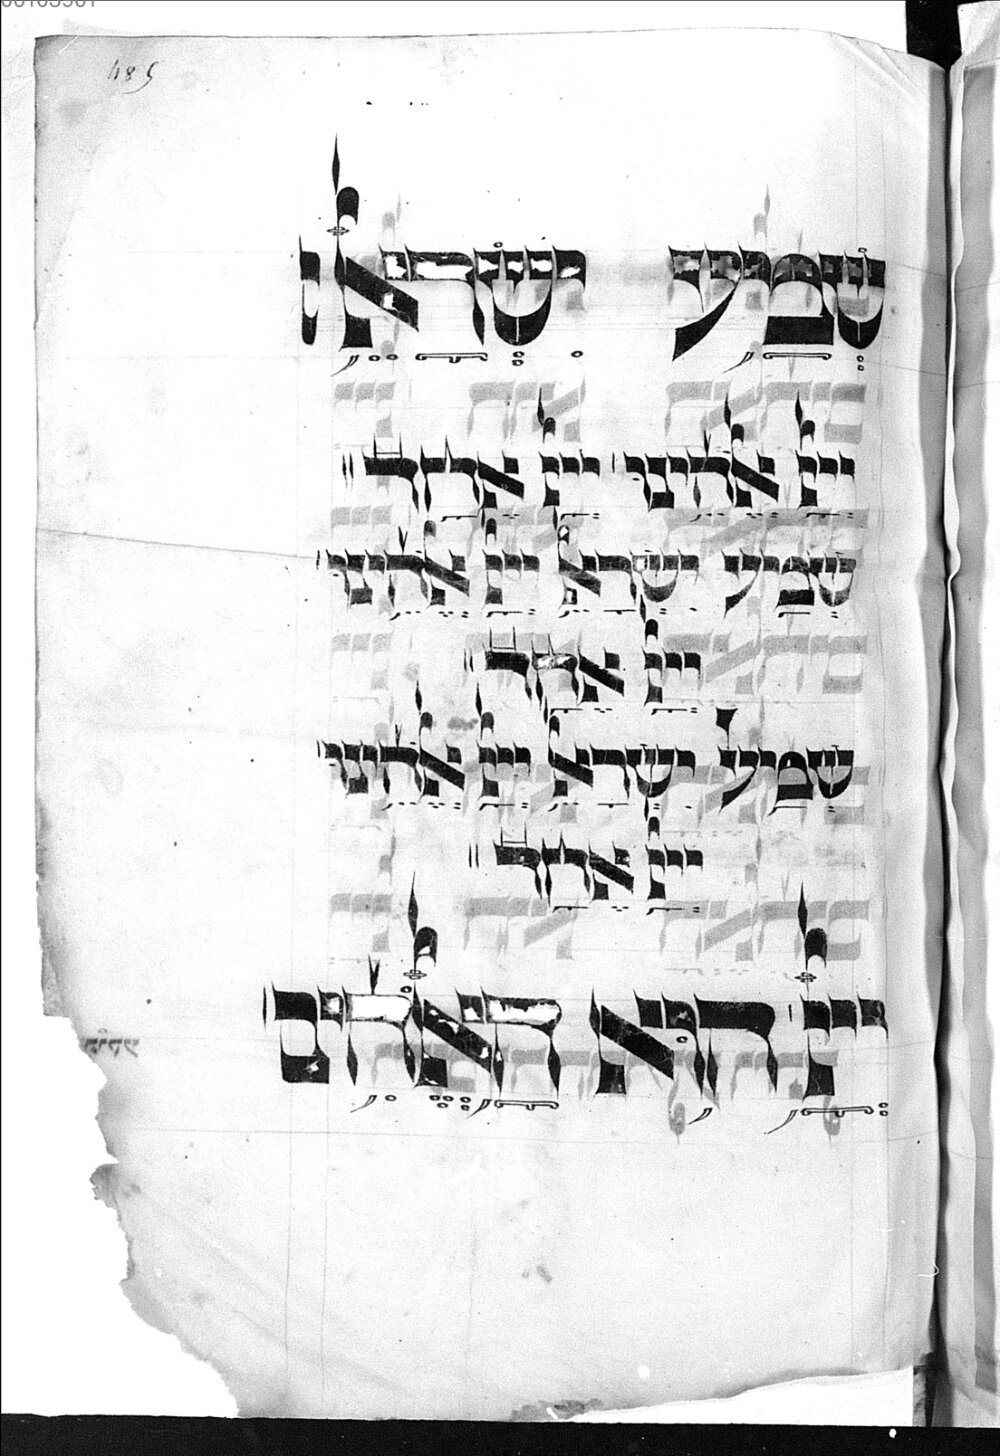 שְׁמַע יִשְׂרָאֵל
יְיָ אֱלֹהֵינוּ יְיָ אֶחָד
שְׁמַע יִשְׂרָאֵל יְיָ אֱלֹהֵינוּ
יְיָ אֶחָד
שְׁמַע יִשְׂרָאֵל יְיָ אֱלֹהֵינוּ
יְיָ אֶחָד
יְיָ הוּא הָאֱלֹהִים